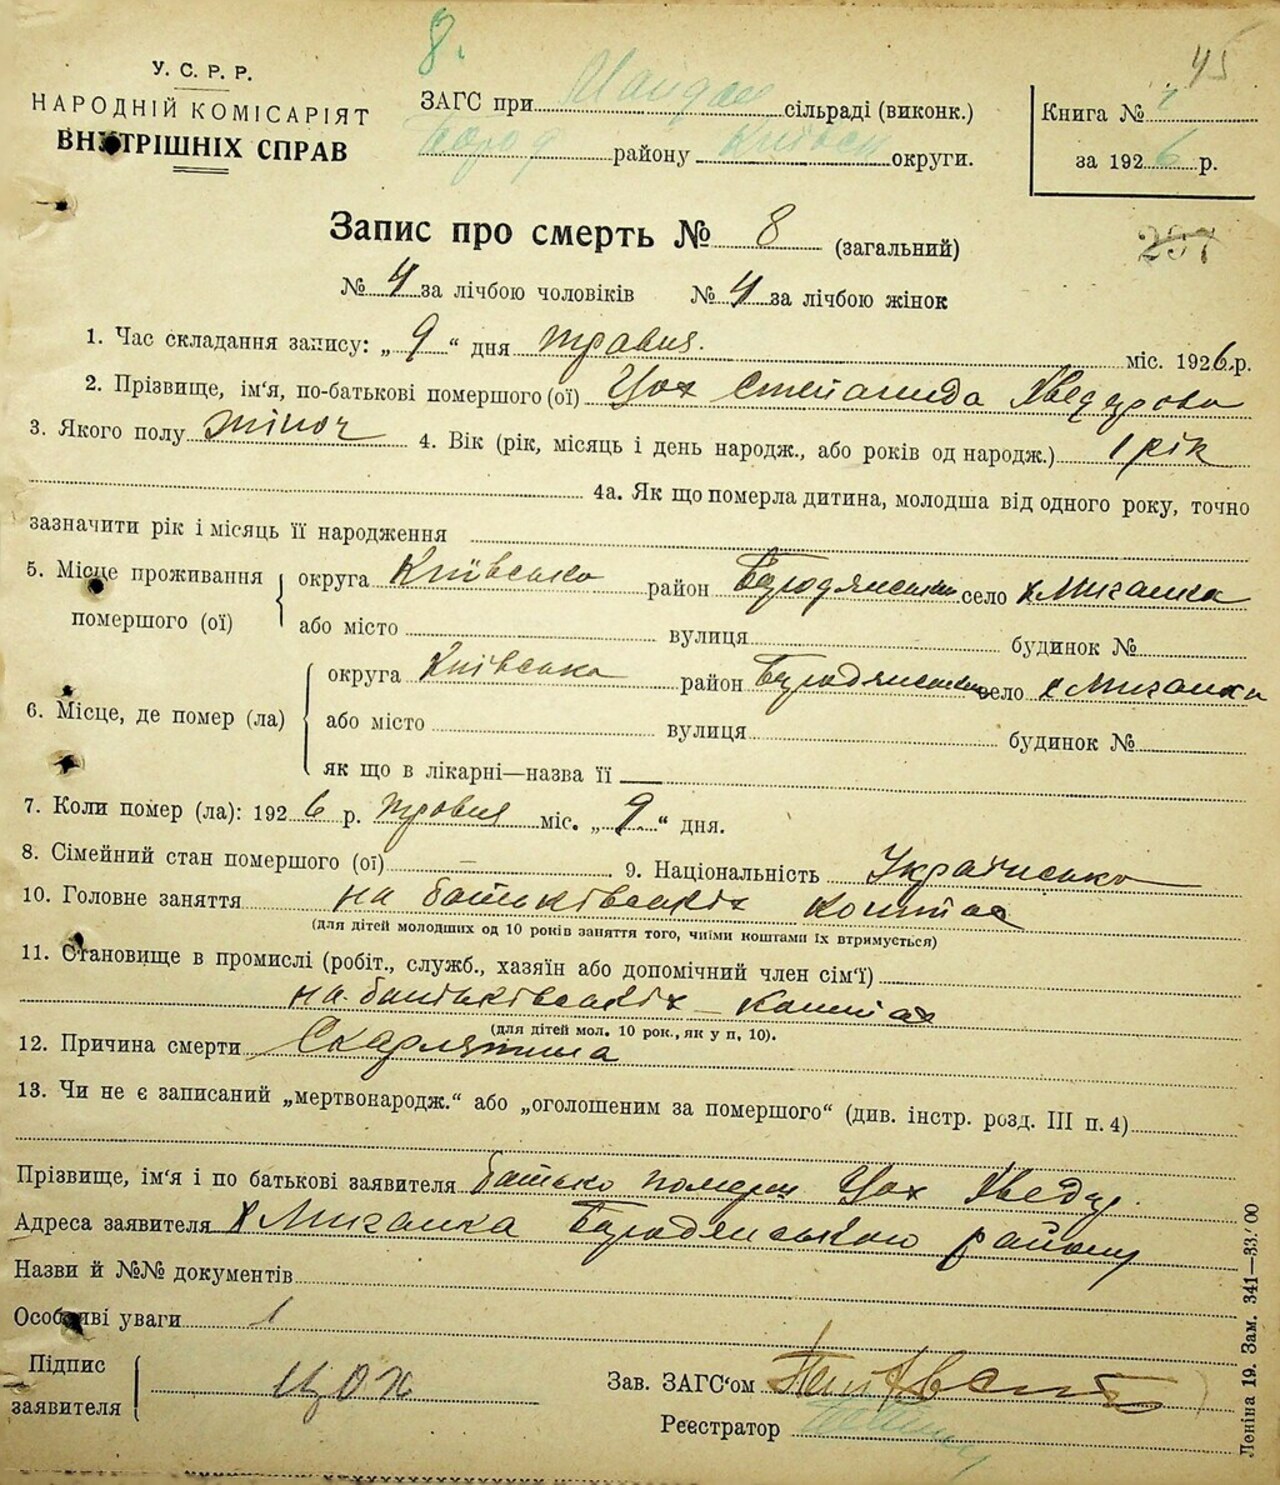 8.
45
У. С. Р. Р.
НАРОДНІЙ КОМІСАРІЯТ
ВНУТРІШНІХ СПРАВ
ЗАГС при сільраді (виконк.)
Бород району Київськ округи.
Книга №
за 1926 р.
Запис про смерть № 8 (загальний)
257
№ 4 за лічбою чоловіків № 4 за лічбою жінок
1. Час складання запису: „ 9 “ дня травня. міс. 1926 р.
2. Прізвище, ім‘я, по-батькові помершого (ої) Цох Степанида Хведурова
3. Якого полу жіноч 4. Вік (рік, місяць і день народж., або років од народж.) 1 рік
4а. Як що померла дитина, молодша від одного року, точно
зазначити рік і місяць її народження
5. Місце проживання помершого (ої) округа Київсько район Бородянський село х Мигалка
або місто вулиця будинок №
6. Місце, де помер (ла) округа Київсько район Бородянський село х Мигалка
або місто вулиця будинок №
як що в лікарні—назва її —
7. Коли помер (ла): 1926 р. травня міс. „ 9 “ дня.
8. Сімейний стан помершого (ої) — 9. Національність Українсько
10. Головне заняття на батьківських коштах
(для дітей молодших од 10 років заняття того, чиїми коштами їх втримується)
11. Становище в промислі (робіт., служб., хазяїн або допомічний член сім‘ї)
на батьківських коштах
(для дітей мол. 10 рок., як у п. 10).
12. Причина смерти Скарлятина
13. Чи не є записаний „мертвонародж.“ або „оголошеним за помершого“ (див. інстр. розд. III п. 4)
Прізвище, ім‘я і по батькові заявителя батько Цох Хведур.
Адреса заявителя х Мигалка Бородянського району
Назви й №№ документів
Особливі уваги
Підпис заявителя Цох
Зав. ЗАГС‘ом
Реєстратор
Леніна 19. Зам. 341—33.